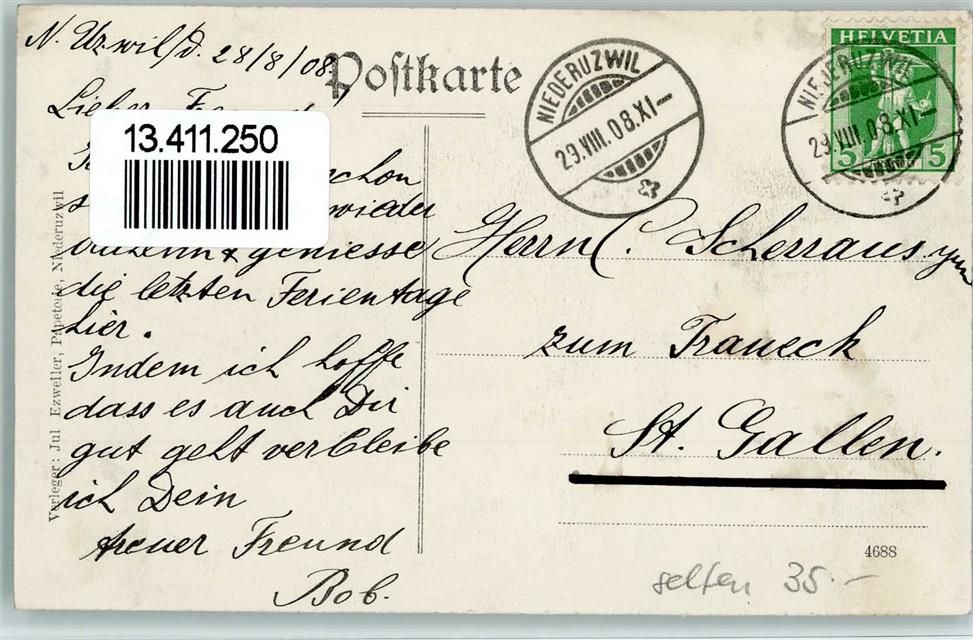 N. Uzwil/d. 28/8/08
Postkarte
Lieber
13.411.250
schon
wieder
& geniesse
die letzten Ferientage
hier.
Indem ich hoffe
dass es auch Dir
gut geht verbleibe
ich Dein
treuer Freund
Bob.
NIEDERUZWIL
29.VIII.08.XI—
HELVETIA
5 5
NIEDERUZWIL
29.VIII.08.XI—
Herrn C. Scherraus jun
zum Traueck
St. Gallen.
4688
selten 35.—
Verleger: Jul Ezweiler, Papeterie, Niederuzwil